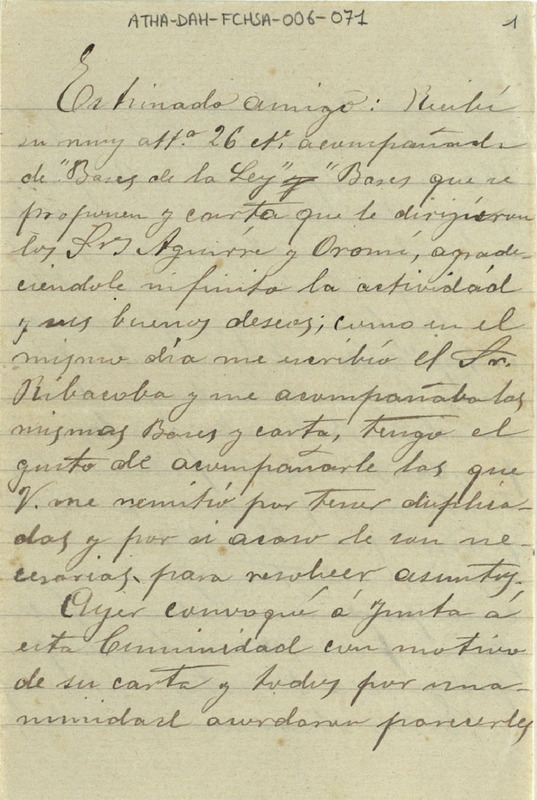 ATHA-DAH-FCHSA-006-071
1
Estimado amigo: Recibí
su muy att.ª 26 ct.e acompañada
de "Bases de la Ley" y "Bases que se
proponen y carta que le dirigieron
los Srs Aguirre y Oromí, agrade-
ciendole infinito la actividad
y sus buenos deseos; como en el
mismo día me escribió el Sr.
Ribacoba y me acompañaba las
mismas Bases y carta, tengo el
gusto de acompañarle las que
V. me remitió por tener duplica-
das y por si acaso le son ne-
cesarias, para resolver asuntos.
Ayer convoqué á Junta á
esta Comunidad con motivo
de su carta y todos por una-
nimidad acordaron parecerles